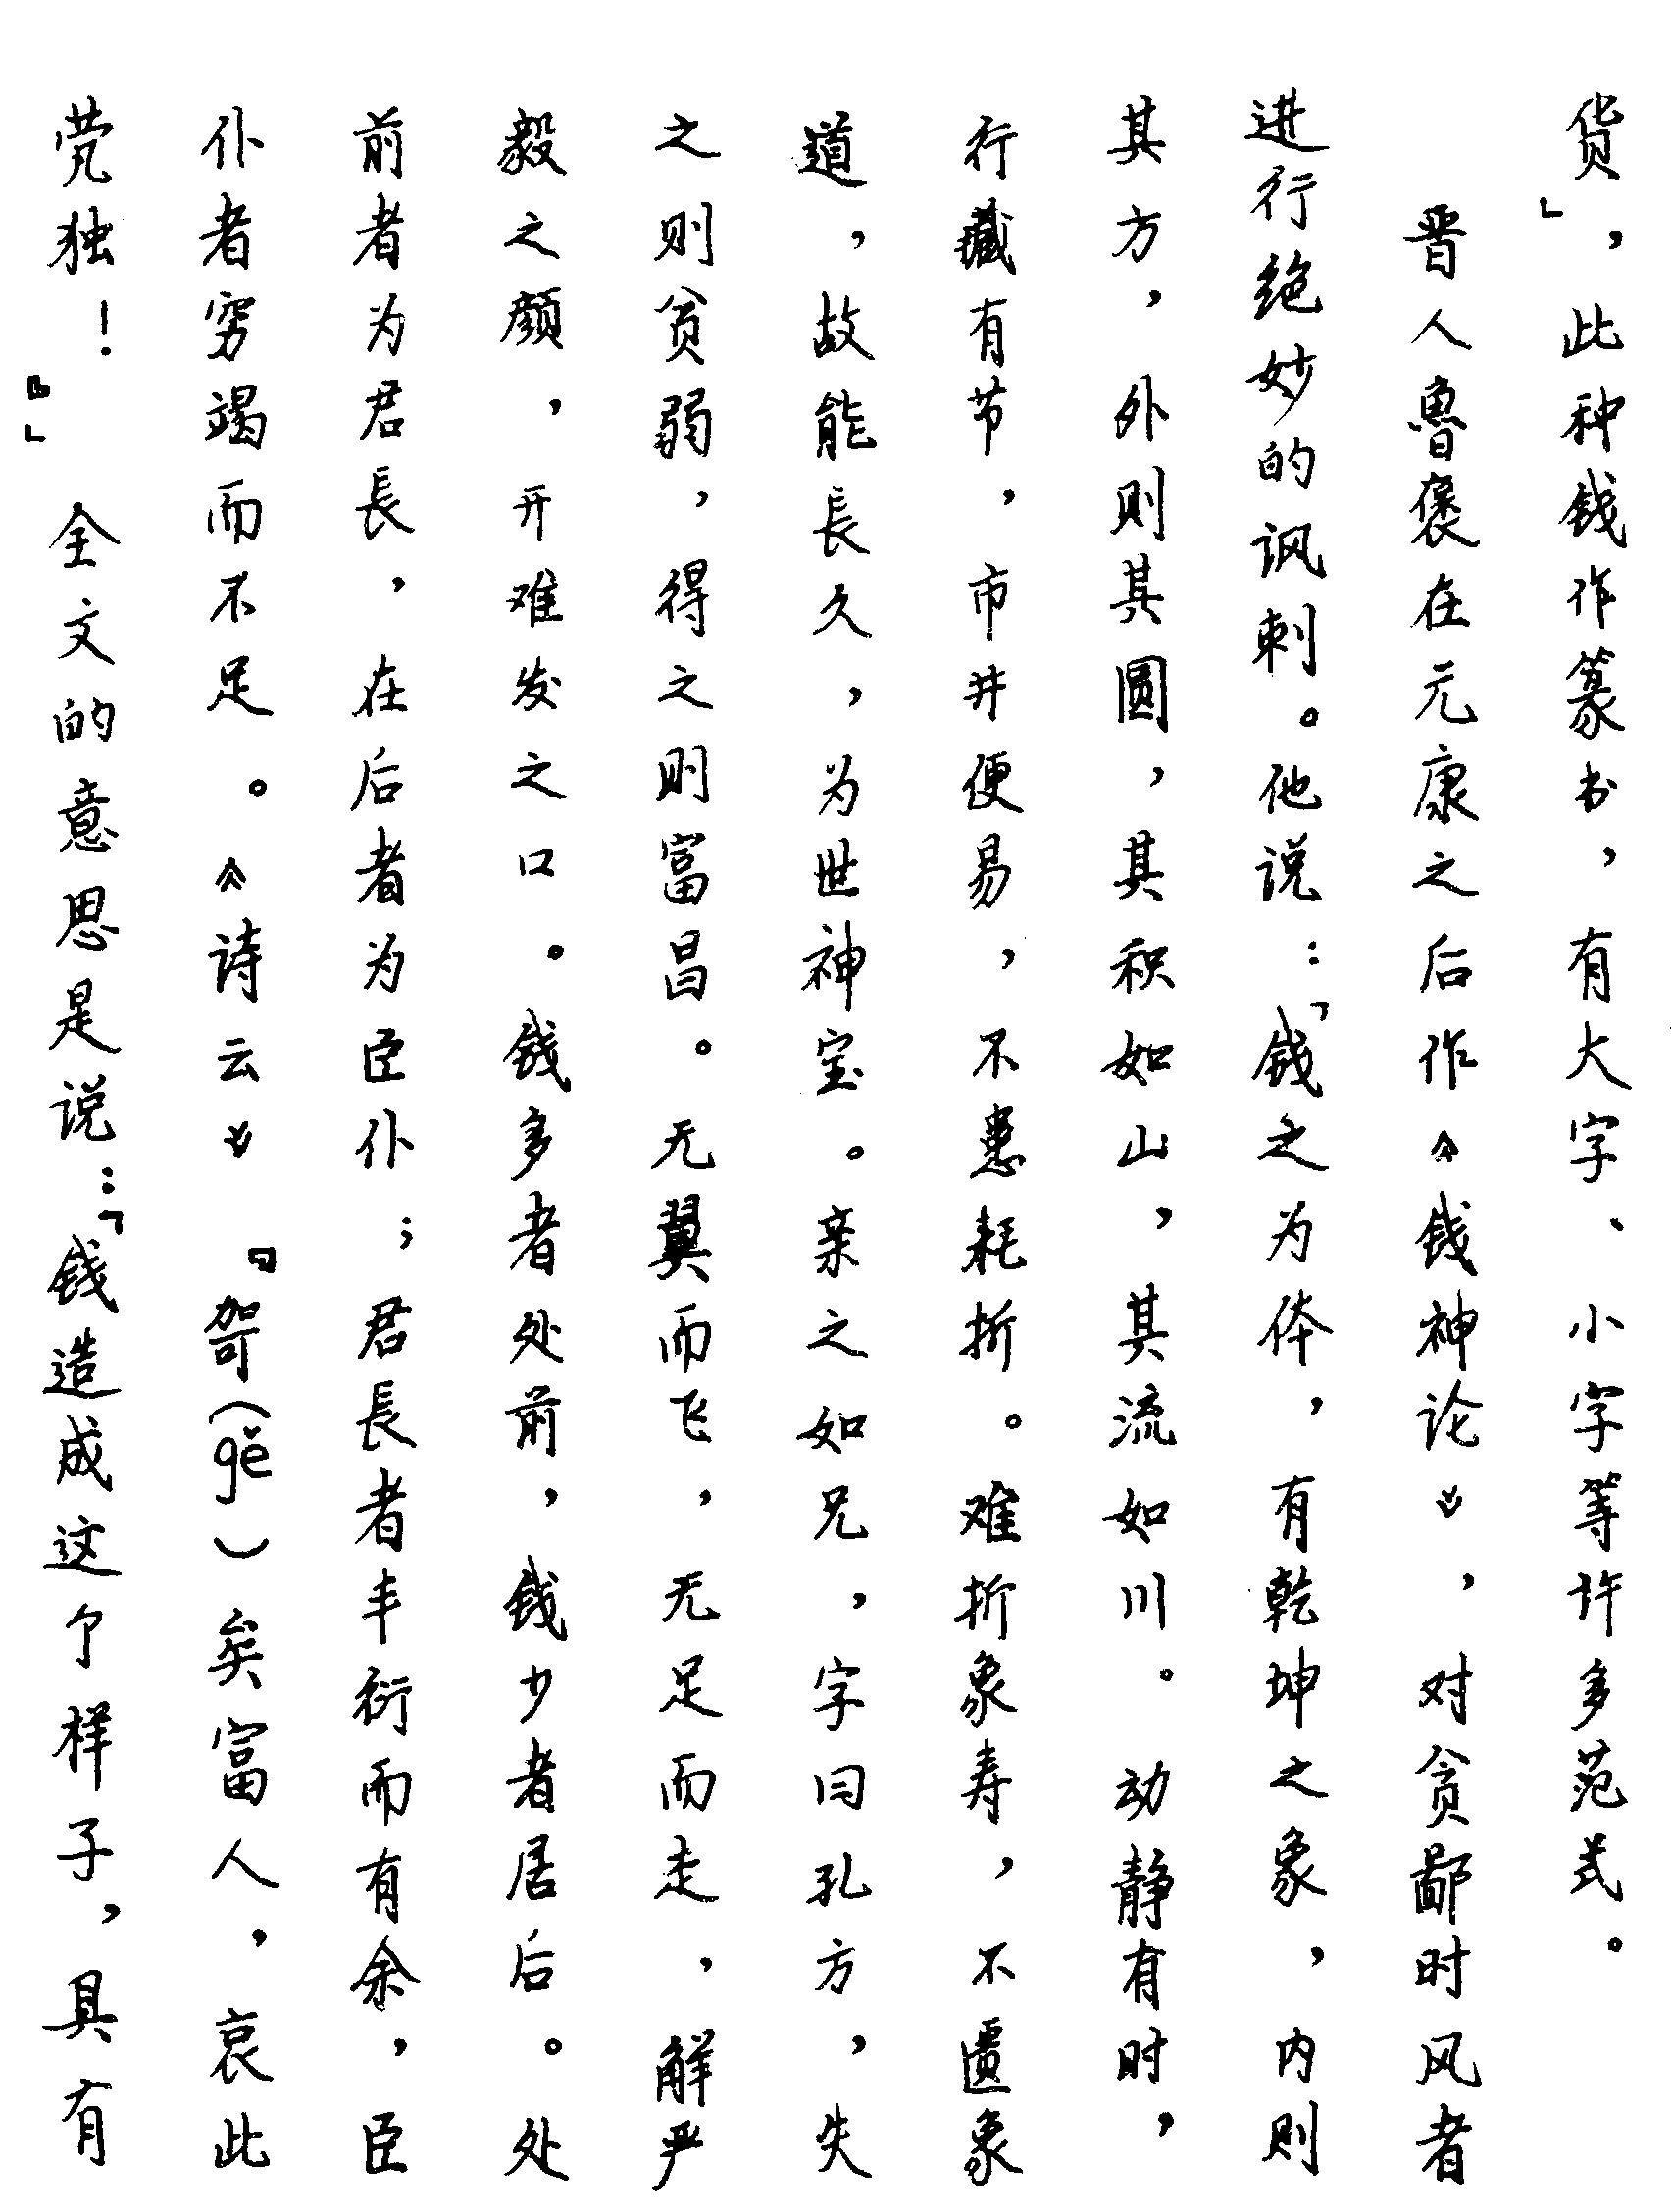 货」，此种钱作篆书，有大字、小字等许多范式。
晋人鲁褒在元康之后作《钱神论》，对贪鄙时风者
进行绝妙的讽刺。他说：「钱之为体，有乾坤之象，内则
其方，外则其圆，其积如山，其流如川。动静有时，
行藏有节，市井便易，不患耗折。难折象寿，不匮象
道，故能長久，为世神宝。亲之如兄，字曰孔方，失
之则贫弱，得之则富昌。无翼而飞，无足而走，解严
毅之颜，开难发之口。钱多者处前，钱少者居后。处
前者为君長，在后者为臣仆；君長者丰衍而有余，臣
仆者穷竭而不足。《诗云》『哿（gě）矣富人，哀此
茕独！』」全文的意思是说：「钱造成这个样子，具有